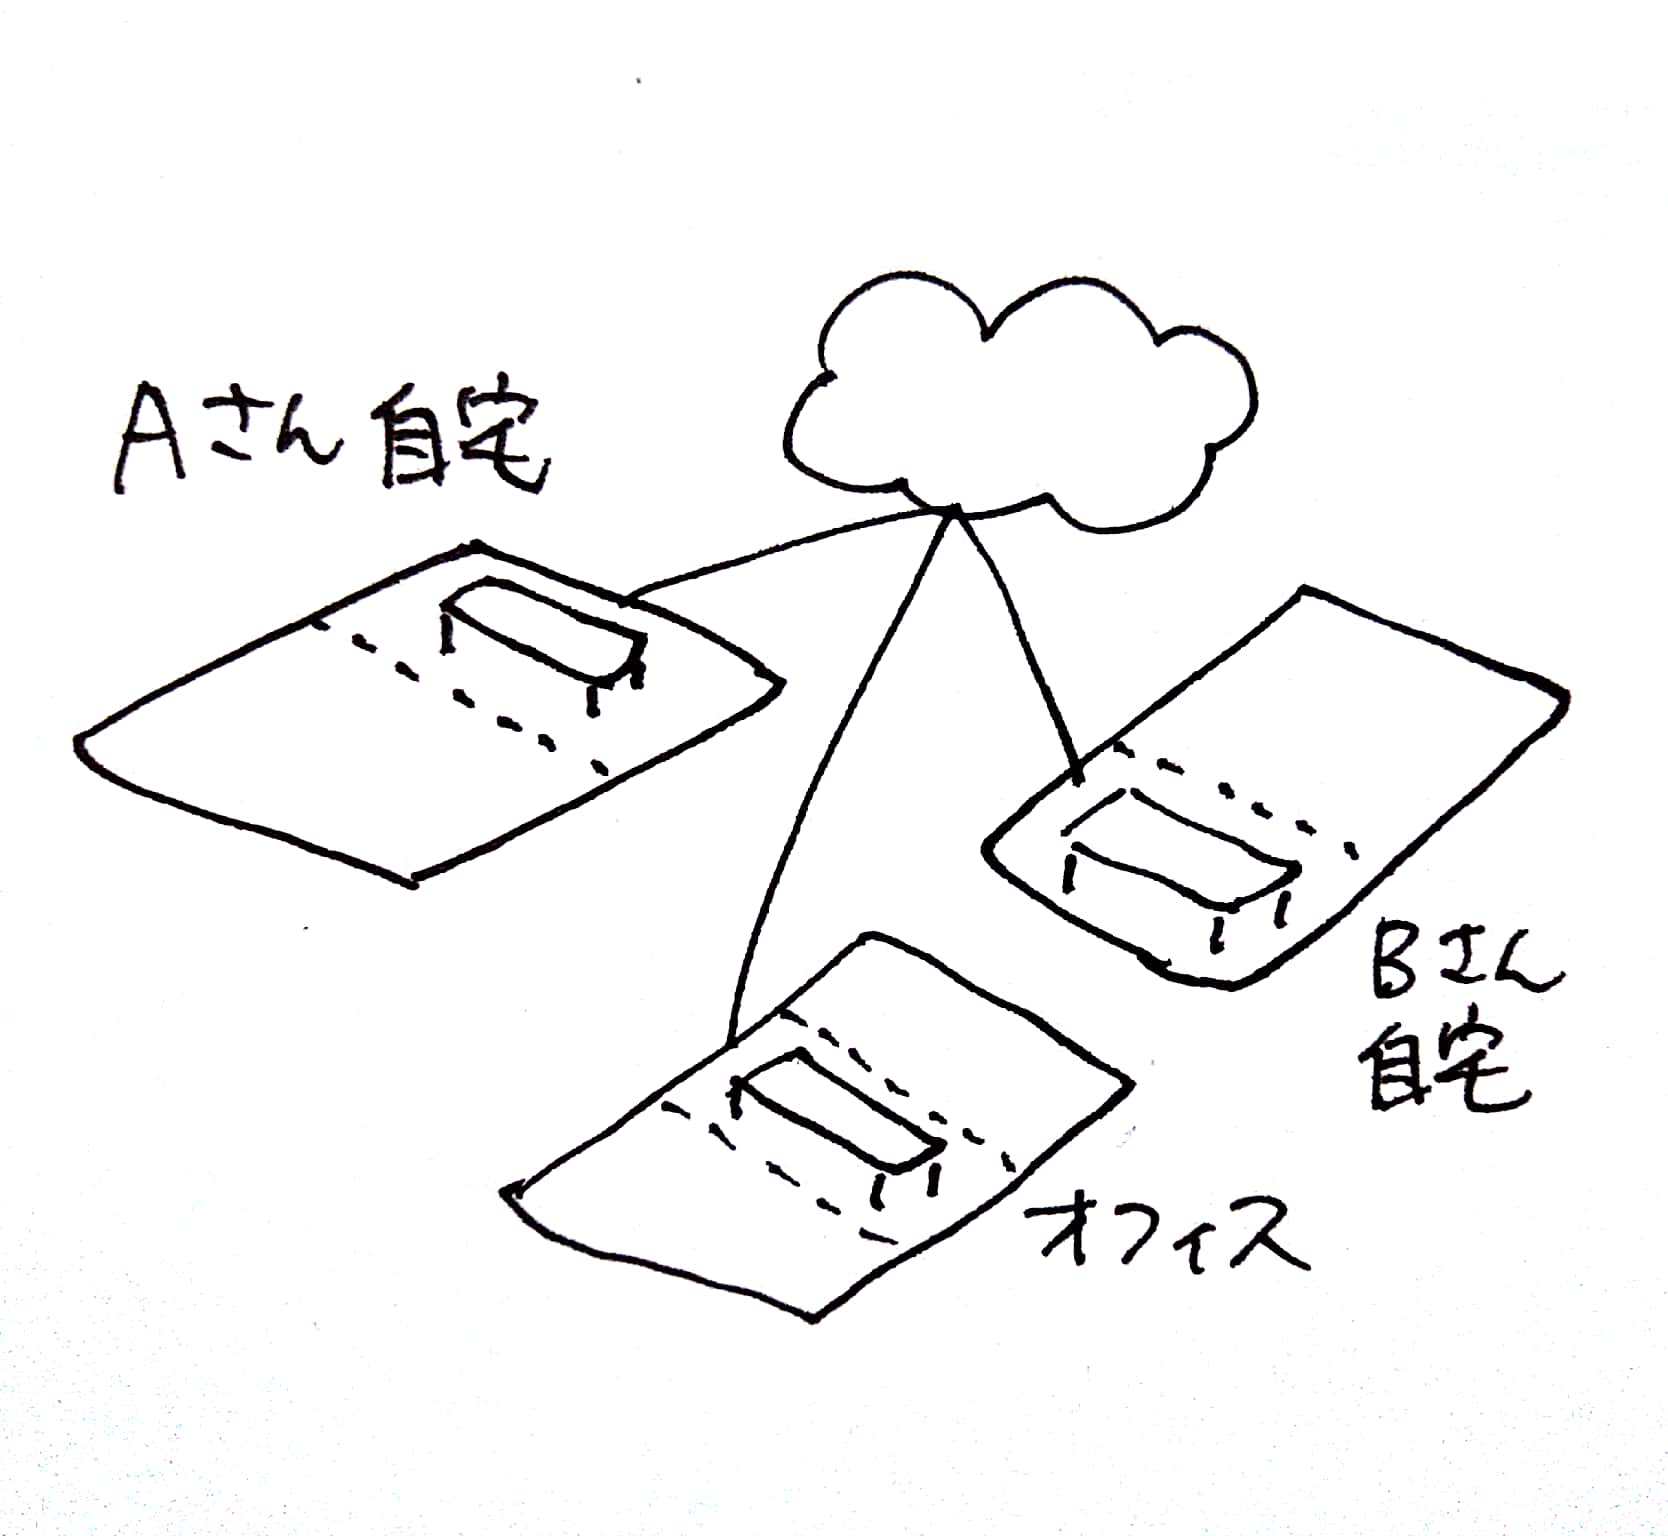 Aさん自宅
Bさん
自宅
オフィス